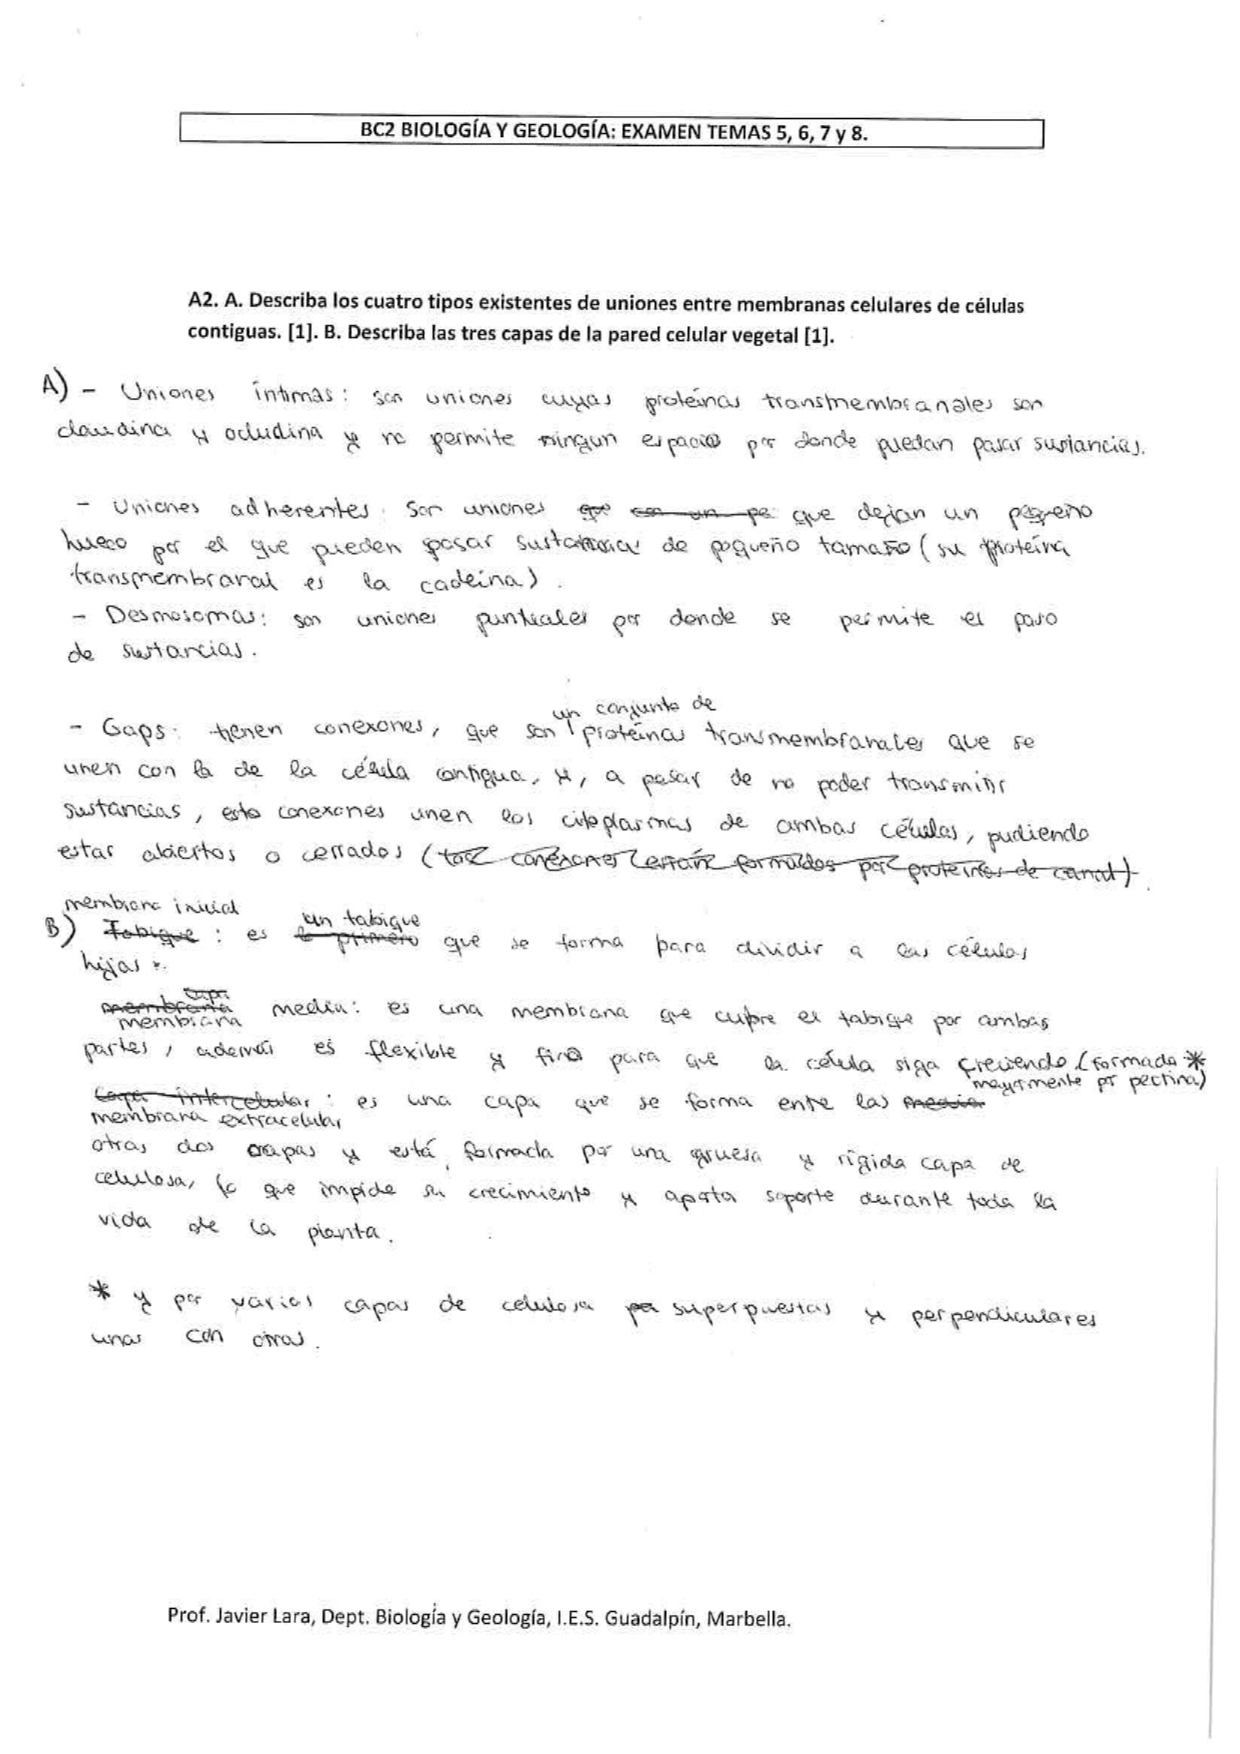 BC2 BIOLOGÍA Y GEOLOGÍA: EXAMEN TEMAS 5, 6, 7 y 8.
A2. A. Describa los cuatro tipos existentes de uniones entre membranas celulares de células
contiguas. [1]. B. Describa las tres capas de la pared celular vegetal [1].
A) - Uniones íntimas: son uniones cuyas proteínas transmembranales son
claudina y ocludina y no permite ningun espacio por donde puedan pasar sustancias.
- Uniones adherentes: Son uniones que son un pe que dejan un pequeño
hueco por el que pueden pasar sustancias de pequeño tamaño (su proteína
transmembranal es la cadeina).
- Desmosomas: son uniones puntuales por donde se permite el paso
de sustancias.
un conjunto de
- Gaps: tienen conexones, que son proteínas transmembranales que se
unen con la de la célula contigua, y, a pesar de no poder transmitir
sustancias, esto conexones unen los citoplasmas de ambas células, pudiendo
estar abiertos o cerrados (los conexones están formados por proteínas de canal).
membrana inicial un tabique
B) Tabique: es lo primero que se forma para dividir a las células
hijas.
capa
membrana media: es una membrana que cubre el tabique por ambas
membrana
partes, además es flexible y fina para que la célula siga creciendo (formada *
mayormente por pectina)
Capa intercelular: es una capa que se forma ente las media
membrana extracelular
otras dos capas y está formada por una gruesa y rígida capa de
celulosa, lo que impide su crecimiento y aporta soporte durante toda la
vida de la planta.
* y por varias capas de celulosa por superpuestas y perpendiculares
unas con otras.
Prof. Javier Lara, Dept. Biología y Geología, I.E.S. Guadalpín, Marbella.